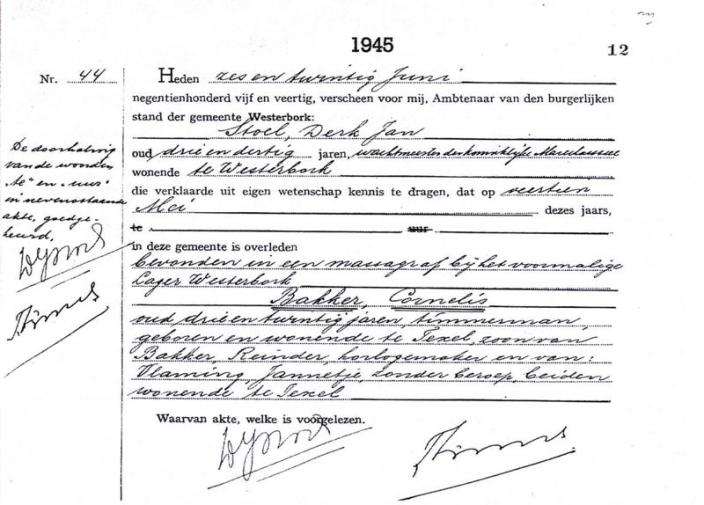 1945
12
Nr. 44
Heden zes en twintig Juni
negentienhonderd vijf en veertig, verscheen voor mij, Ambtenaar van den burgerlijken
stand der gemeente Westerbork:
Stoel, Derk Jan
oud drie en dertig jaren, wachtmeester der koninklijke Marechaussee
wonende te Westerbork
die verklaarde uit eigen wetenschap kennis te dragen, dat op veertien
Mei dezes jaars,
te uur
in deze gemeente is overleden
bevonden in een massagraf bij het voormalige
Lager Westerbork
Bakker, Cornelis
oud drie en twintig jaren, timmerman,
geboren en wonende te Texel, zoon van
Bakker, Reinder, horlogemaker en van:
Vlaming, Jannetje, zonder beroep, beiden
wonende te Texel
Waarvan akte, welke is voorgelezen.
De doorhaling
van de woorden
"te" en "uur"
in nevenstaande
akte, goedge-
keurd,